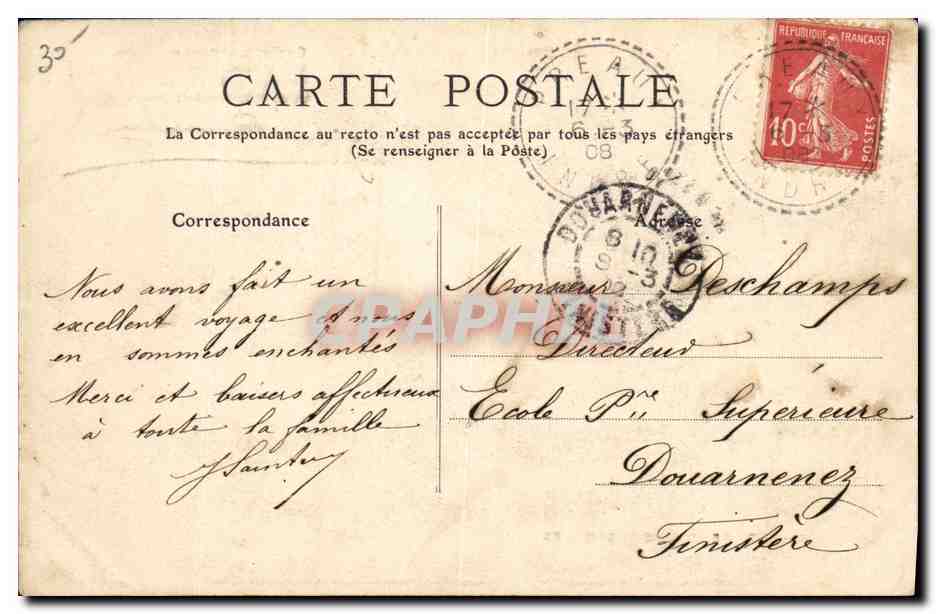 35
CARTE POSTALE
La Correspondance au recto n'est pas acceptée par tous les pays étrangers
(Se renseigner à la Poste)
REPUBLIQUE FRANÇAISE
10c
POSTES
08
Correspondance
Adresse
DOUARNENEZ
Nous avons fait un
excellent voyage et nous
en sommes enchantés
Merci et baisers affectueux
à toute la famille
Monsieur Deschamps
Directeur
Ecole Pre Supérieure
Douarnenez
Finistère
CPAPHIL